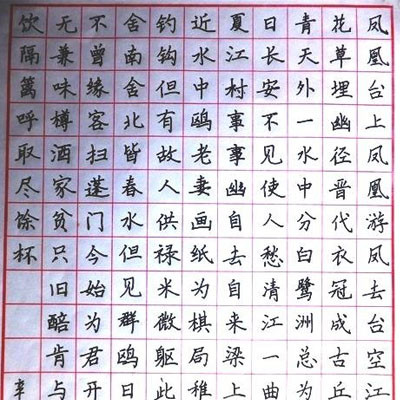 凤凰台上凤凰游凤去台空江
花草埋幽径晋代衣冠成古丘
青天外一水中分白鹭洲总为
日长安不见使人愁清江一曲
夏江村事事幽自去自来梁上
近水中鸥老妻画纸为棋局稚
钓钩但有故人供禄米微躯此
舍南舍北皆春水但见群鸥日
不曾缘客扫蓬门今始为君开
无兼味樽酒家贫只旧醅肯与
饮隔篱呼取尽馀杯